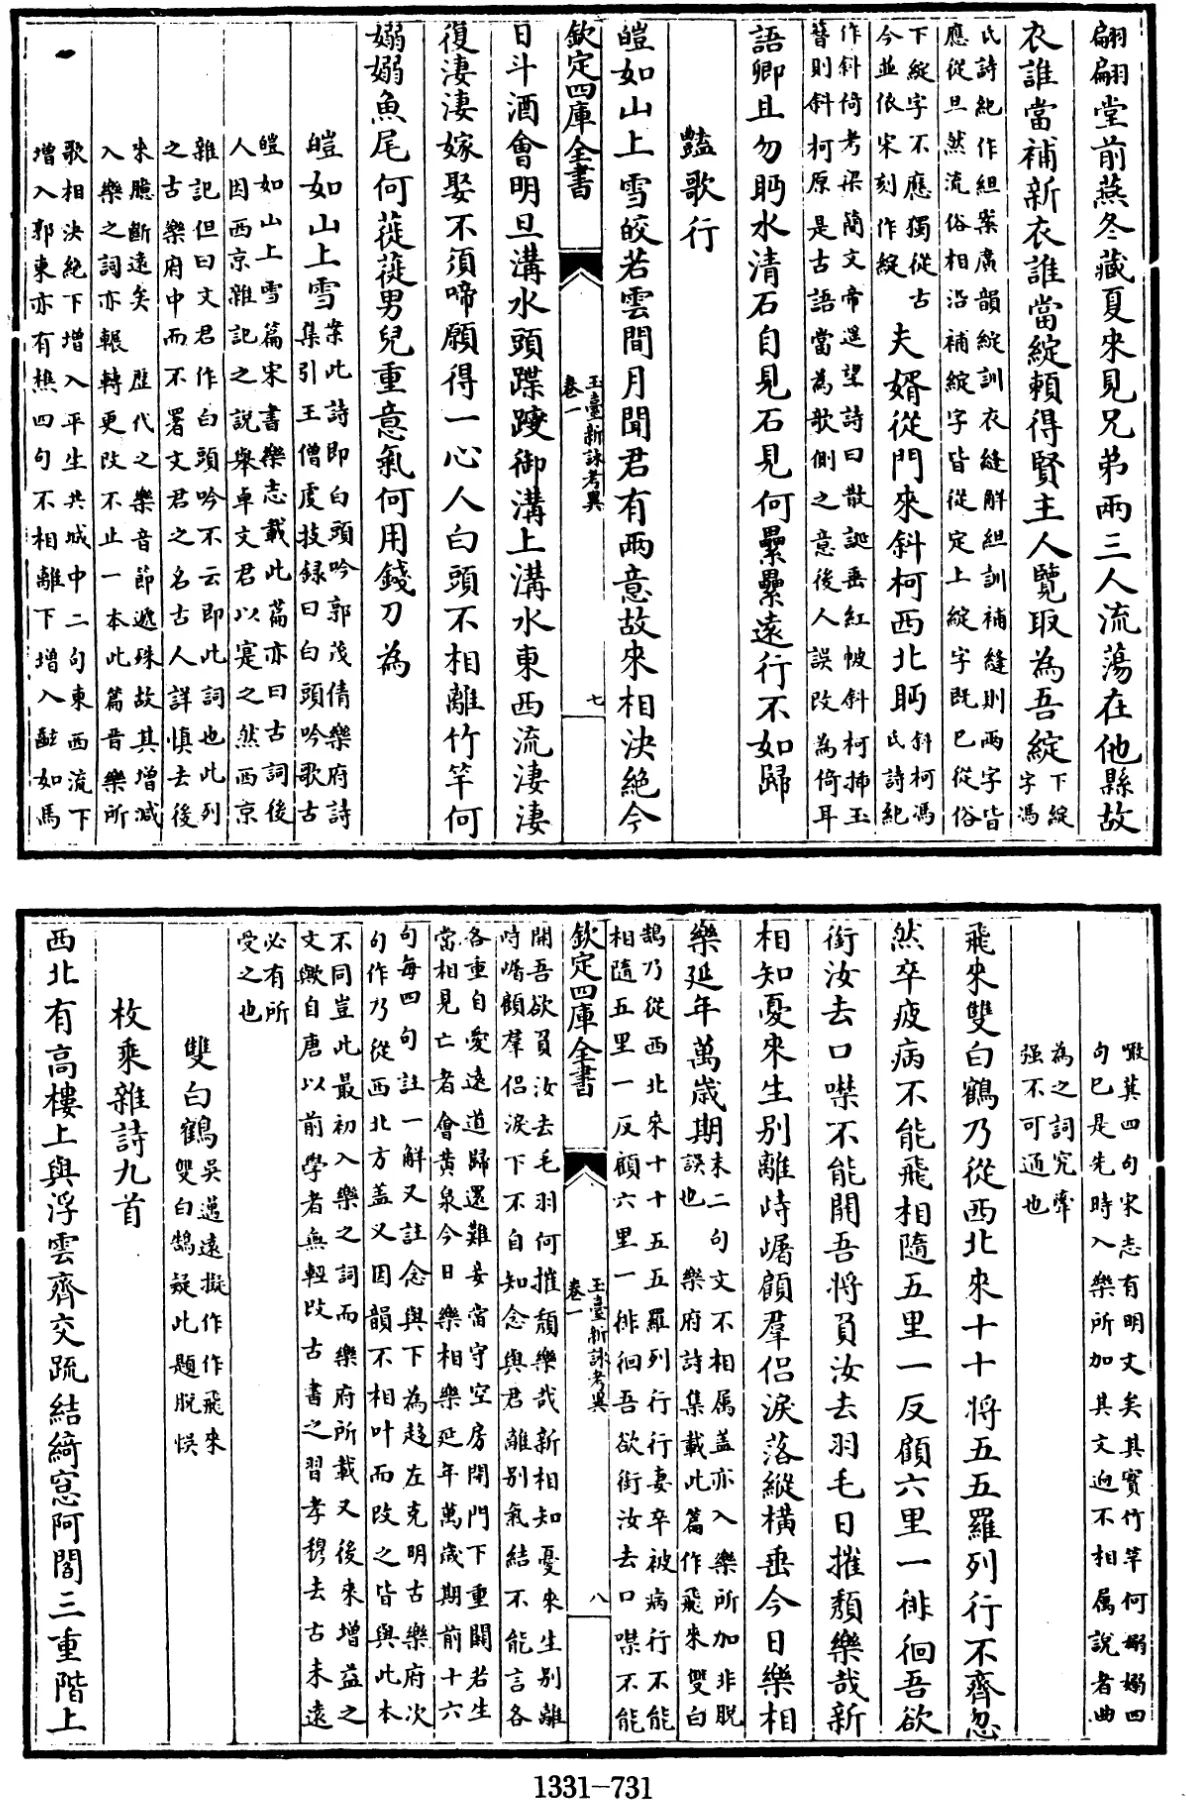 翩翩堂前燕冬藏夏來見兄弟兩三人流蕩在他縣故
衣誰當補新衣誰當綻賴得賢主人覽取為吾綻下綻
字馮
氏詩紀作組案廣韻綻訓衣縫解組訓補縫則兩字皆
應從旦然流俗相沿補綻字皆從定上綻字既已從俗
下綻字不應獨從古
今並依宋刻作綻
夫婿從門來斜柯西北眄斜柯馮
氏詩紀
作斜倚考梁簡文帝遥望詩曰散誕垂紅帔斜柯揷玉
簮則斜柯原是古語當為欹側之意後人誤改為倚耳
語卿且勿眄水清石自見石見何纍纍遠行不如歸
豔歌行
皚如山上雪皎若雲間月聞君有兩意故來相決絶今
欽定四庫全書
玉臺新詠考異
卷一
七
日斗酒會明旦溝水頭蹀躞御溝上溝水東西流淒淒
復淒淒嫁娶不須啼願得一心人白頭不相離竹竿何
嫋嫋魚尾何蓰蓰男兒重意氣何用錢刀為
皚如山上雪案此詩即白頭吟郭茂倩樂府詩
集引王僧虔技録曰白頭吟歌古
皚如山上雪篇宋書樂志載此篇亦曰古詞後
人因西京雜記之說舉卓文君以寔之然西京
雜記但曰文君作白頭吟不云即此詞也此列
之古樂府中而不署文君之名古人詳慎去後
來臆斷遠矣 歴代之樂音節遞殊故其增減
入樂之詞亦輾轉更改不止一本此篇晉樂所
歌相決絶下增入平生共城中二句東西流下
增入郭東亦有樵四句不相離下增入䶞如馬
噉萁四句宋志有明文矣其實竹竿何嫋嫋四
句已是先時入樂所加其文迥不相属說者曲
為之詞究牽
强不可通也
飛來雙白鶴乃從西北來十十将五五羅列行不齊忽
然卒疲病不能飛相隨五里一反顧六里一徘徊吾欲
銜汝去口噤不能開吾将負汝去羽毛日摧頽樂哉新
相知憂來生别離峙㠜顧羣侣淚落縱橫垂今日樂相
樂延年萬歲期末二句文不相属盖亦入樂所加非脱
誤也 樂府詩集載此篇作飛來雙白
鵠乃從西北來十十五五羅列行行妻卒被病行不能
相隨五里一反顧六里一徘徊吾欲銜汝去口噤不能
欽定四庫全書
玉臺新詠考異
卷一
八
開吾欲負汝去毛羽何摧頽樂哉新相知憂來生别離
峙㠜顧羣侣淚下不自知念與君離别氣結不能言各
各重自愛逺道歸還難妾當守空房閉門下重關若生
當相見亡者會黄泉今日樂相樂延年萬歲期前十六
句每四句註一解又註念與下為趍左克明古樂府次
句作乃從西北方盖又因韻不相叶而改之皆與此本
不同豈此最初入樂之詞而樂府所載又後來增益之
文歟自唐以前學者無輕改古書之習孝穆去古未遠
必有所
受之也
雙白鶴吳邁遠擬作作飛來
雙白鵠疑此題脱悮
枚乘雜詩九首
西北有高樓上與浮雲齊交疏結綺窓阿閣三重階上
1331-731